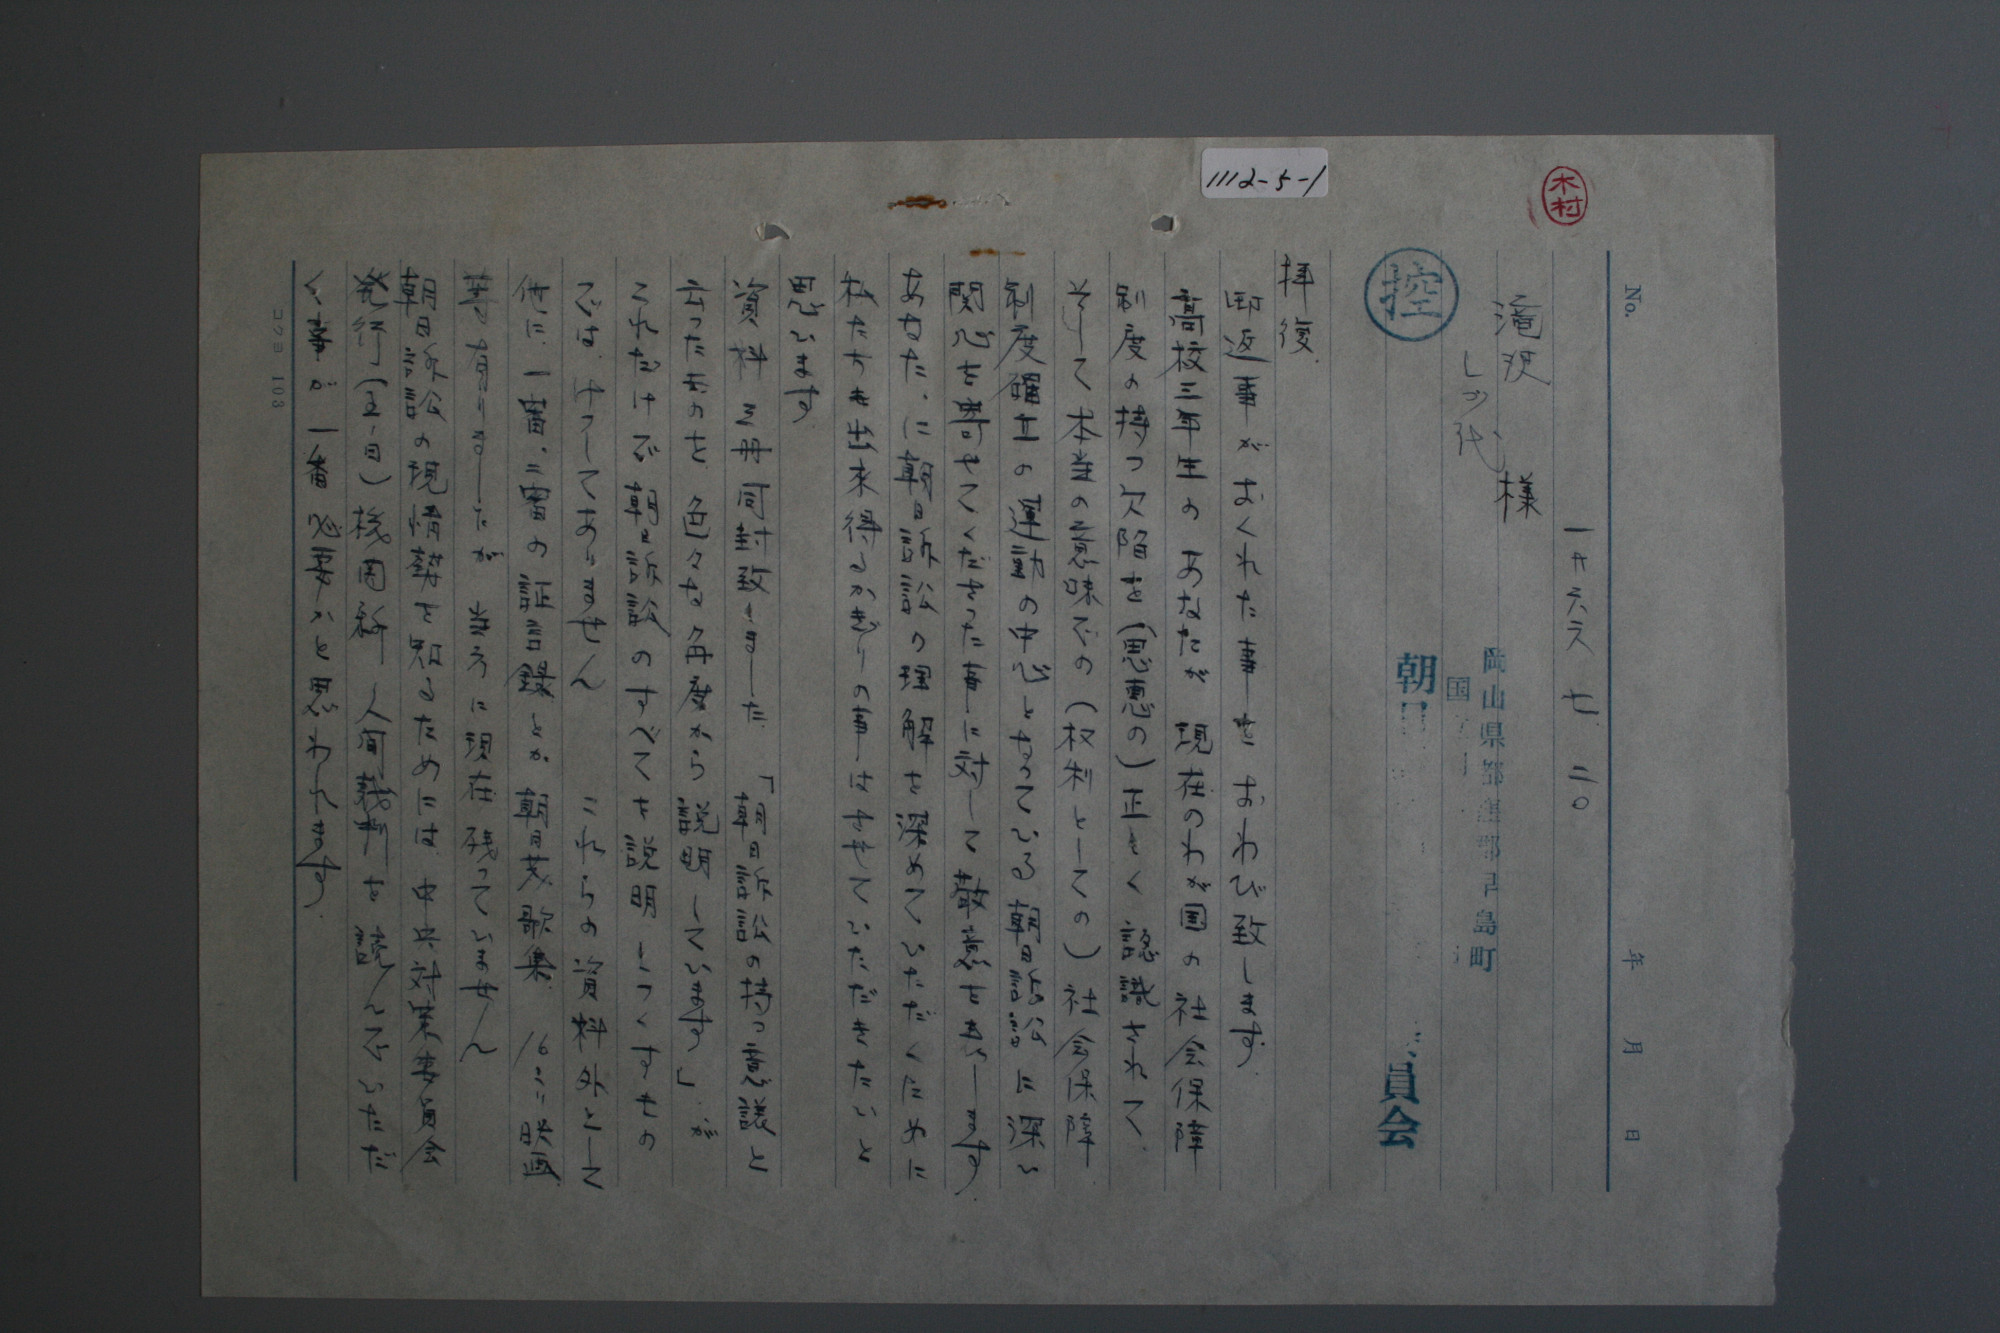 1112-5-1
木村
No.
年 月 日
一九六六 七. 二〇
滝沢
様
岡山県都窪郡早島町
国
朝日
員会
控
拝復.
御返事がおくれた事をおわび致します.
高校三年生のあなたが 現在のわが国の社会保障
制度の持つ欠陥を(恩恵の)正しく認識されて.
そして本当の意味での(权利としての)社会保障
制度確立の運動の中心となっている朝日訴訟に深い
関心を寄せてくださった事に対して敬意を表します.
あなたに朝日訴訟の理解を深めていただくために
私たちも出来得るかぎりの事はさせていただきたいと
思います
資料三冊同封致しました.「朝日訴訟の持つ意議と
云ったものを 色々な角度から説明しています」が
これだけで朝日訴訟のすべてを説明しつくすもの
では.けっしてありません これらの資料外として
他に 一審.二審の証言録とか 朝日茂歌集 16ミリ映画
等が有りましたが 当方に現在残っていません
朝日訴訟の現情勢を知るためには.中央対策委員会
発行(   日)機関紙 人間裁判を 読んでいただ
く事が一番必要かと思われます.
コクヨ 103